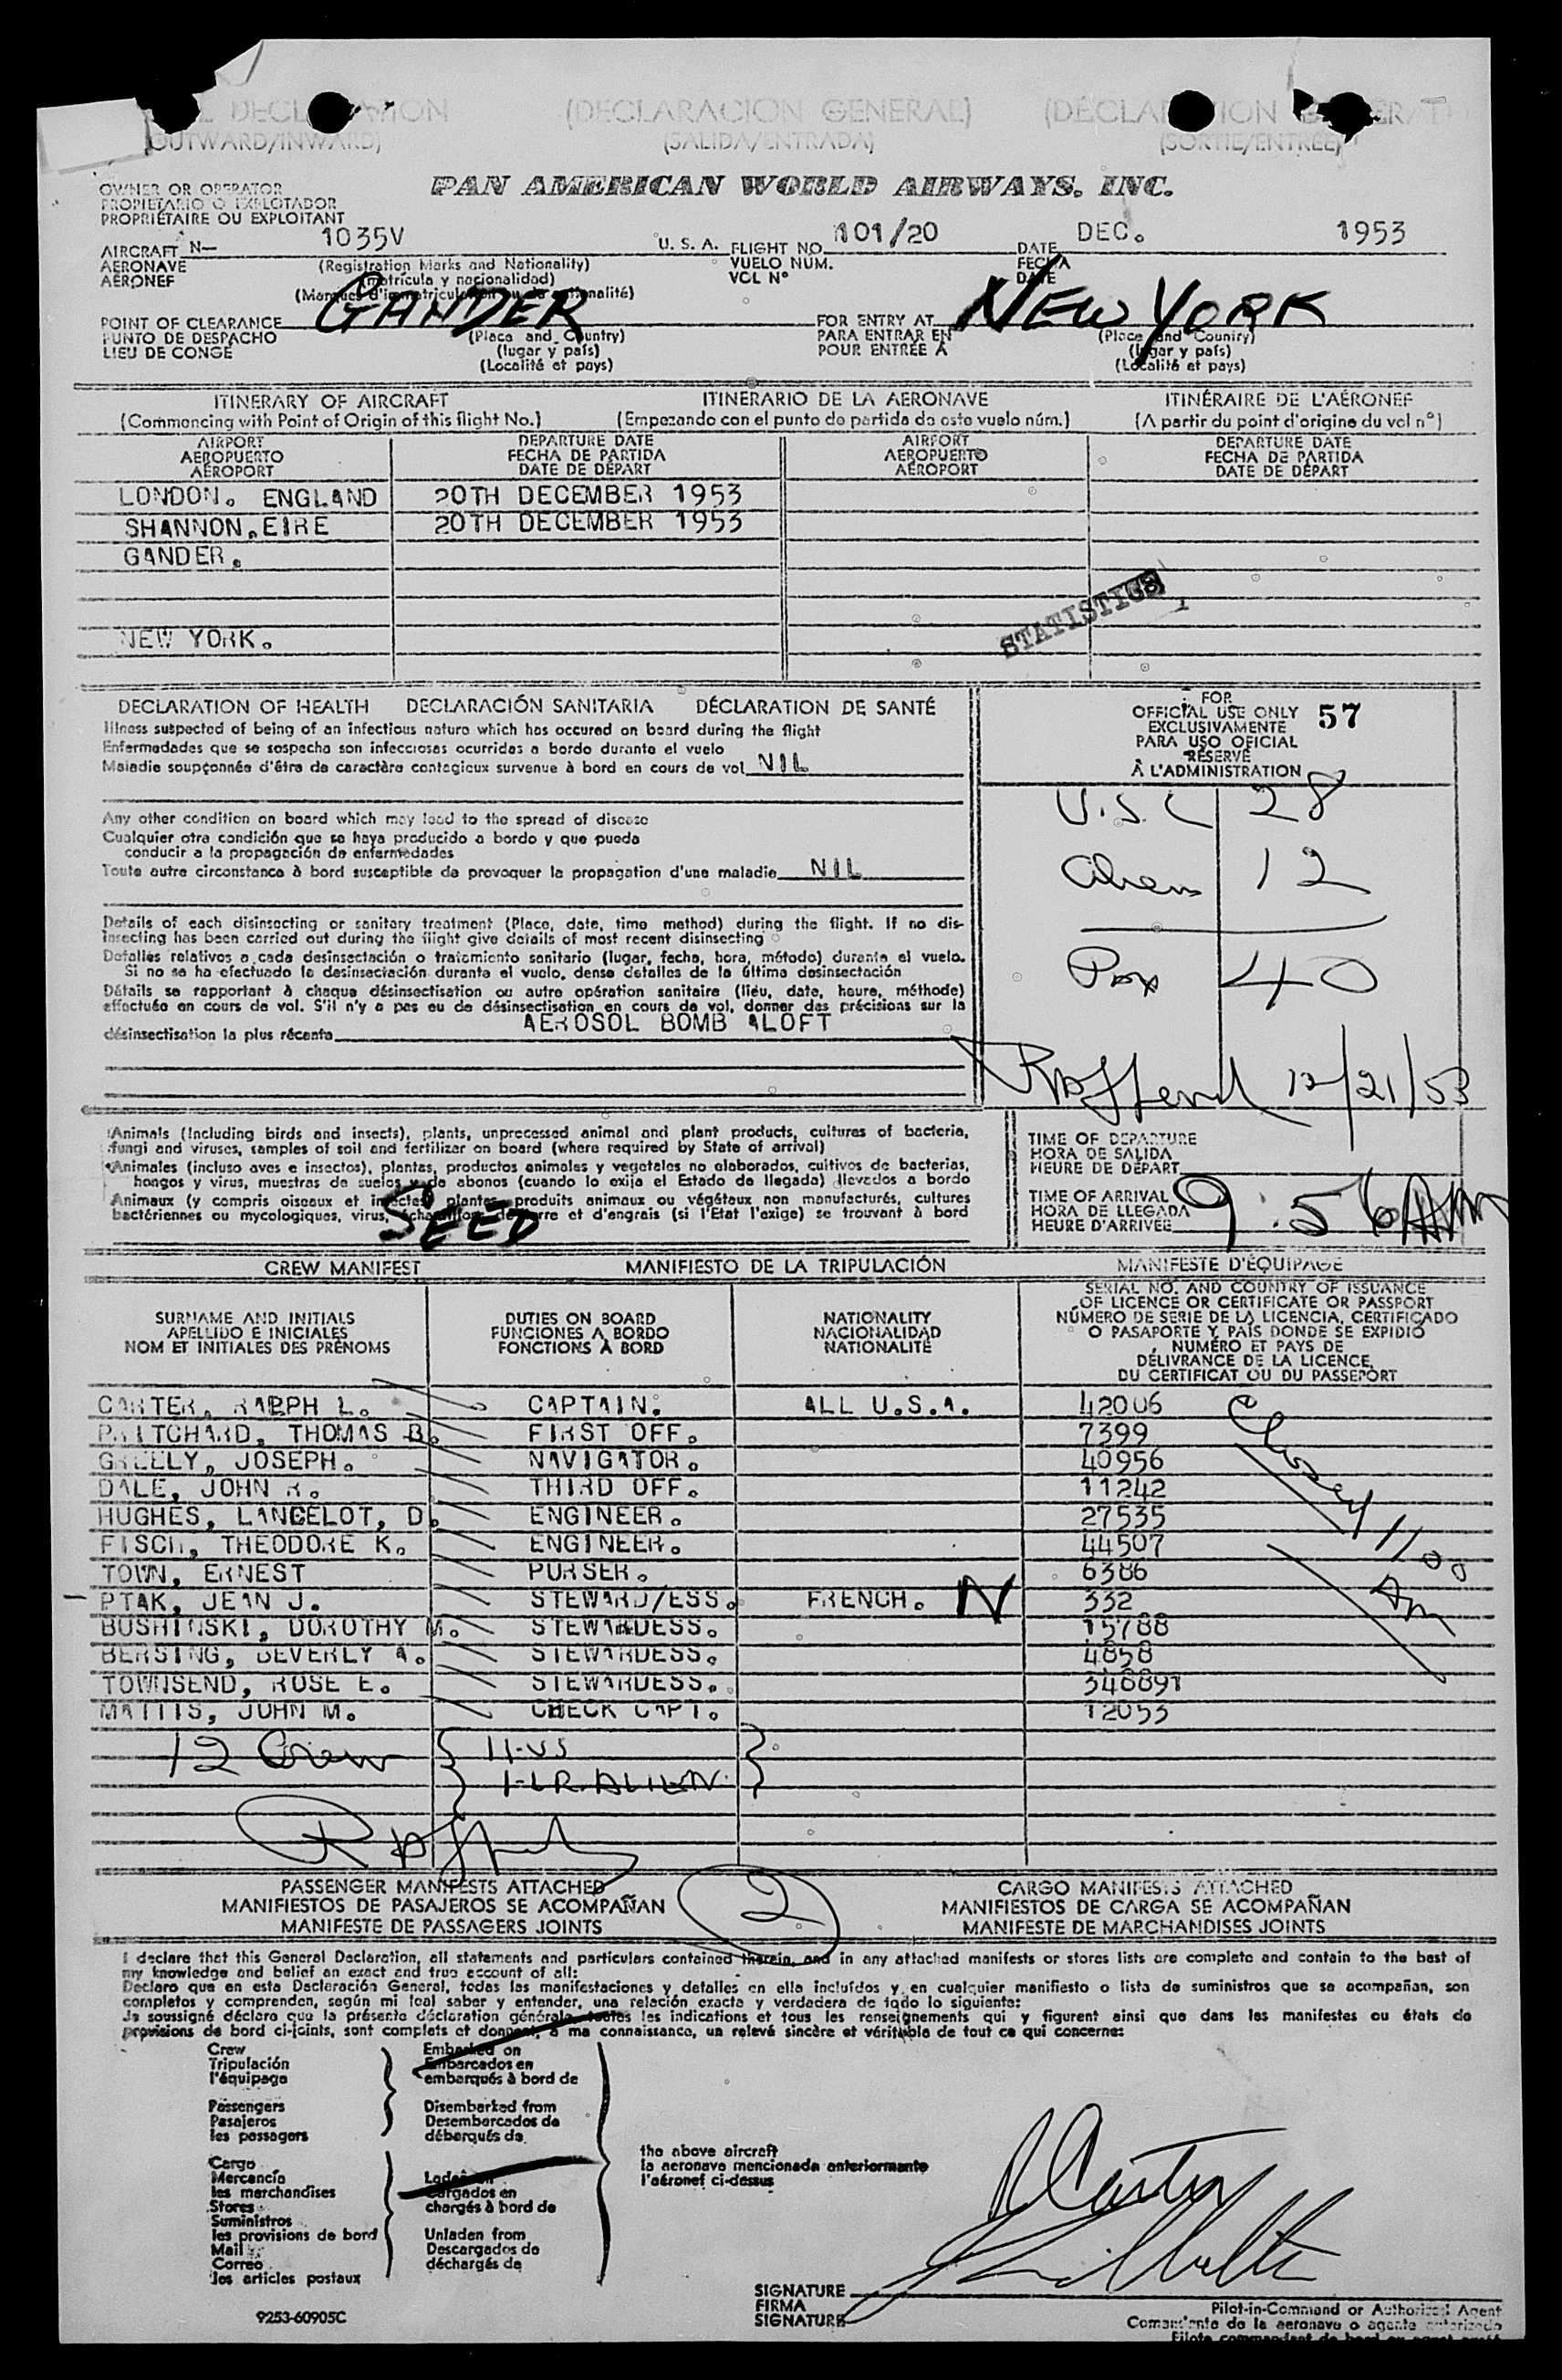 (DECLARACION GENERAL)
(OUTWARD/INWARD) (SALIDA/ENTRADA) (SORTIE/ENTRÉE)
OWNER OR OPERATOR PAN AMERICAN WORLD AIRWAYS, INC.
PROPIETARIO O EXPLOTADOR
PROPRIÉTAIRE OU EXPLOITANT
AIRCRAFT N— 1035V U. S. A. FLIGHT NO. 101/20 DATE DEC. 1953
AERONAVE (Registration Marks and Nationality) VUELO NUM. FECHA
AÉRONEF (matrícula y nacionalidad) VOL Nº DATE
(Marques d'immatriculation ou de nationalité)
POINT OF CLEARANCE GANDER FOR ENTRY AT NEW YORK
PUNTO DE DESPACHO (Place and Country) PARA ENTRAR EN (Place and Country)
LIEU DE CONGÉ (lugar y país) POUR ENTRÉE A (lugar y país)
(Localité et pays) (Localité et pays)
ITINERARY OF AIRCRAFT ITINERARIO DE LA AERONAVE ITINÉRAIRE DE L'AÉRONEF
(Commencing with Point of Origin of this flight No.) (Empezando con el punto de partida de este vuelo núm.) (A partir du point d'origine du vol nº)
AIRPORT DEPARTURE DATE AIRPORT DEPARTURE DATE
AEROPUERTO FECHA DE PARTIDA AEROPUERTO FECHA DE PARTIDA
AÉROPORT DATE DE DÉPART AÉROPORT DATE DE DÉPART
LONDON. ENGLAND 20TH DECEMBER 1953
SHANNON, EIRE 20TH DECEMBER 1953
GANDER.
STATISTICS
NEW YORK.
DECLARATION OF HEALTH DECLARACIÓN SANITARIA DÉCLARATION DE SANTÉ
Illness suspected of being of an infectious nature which has occured on board during the flight
Enfermedades que se sospecha son infecciosas ocurridas a bordo durante el vuelo
Maladie soupçonnée d'être de caractère contagieux survenue à bord en cours de vol NIL
Any other condition on board which may lead to the spread of disease
Cualquier otra condición que se haya producido a bordo y que pueda
conducir a la propagación de enfermedades
Toute autre circonstance à bord susceptible de provoquer la propagation d'une maladie NIL
Details of each disinsecting or sanitary treatment (Place, date, time method) during the flight. If no dis-
insecting has been carried out during the flight give details of most recent disinsecting
Detalles relativos a cada desinsectación o tratamiento sanitario (lugar, fecha, hora, método) durante el vuelo.
Si no se ha efectuado la desinsectación durante el vuelo, dense detalles de la última desinsectación
Détails se rapportant à chaque désinsectisation ou autre opération sanitaire (lieu, date, heure, méthode)
effectuée en cours de vol. S'il n'y a pas eu de désinsectisation en cours de vol, donner des précisions sur la
désinsectisation la plus récente AEROSOL BOMB ALOFT
FOR
OFFICIAL USE ONLY 57
EXCLUSIVAMENTE
PARA USO OFICIAL
RÉSERVÉ
À L'ADMINISTRATION
U.S.C 28
Aliens 12
Pax 40
12/21/53
Animals (Including birds and insects), plants, unprocessed animal and plant products, cultures of bacteria,
fungi and viruses, samples of soil and fertilizer on board (where required by State of arrival)
Animales (incluso aves e insectos), plantas, productos animales y vegetales no elaborados, cultivos de bacterias,
hongos y virus, muestras de suelos y de abonos (cuando lo exija el Estado de llegada) llevados a bordo
Animaux (y compris oiseaux et insectes), plantes, produits animaux ou végétaux non manufacturés, cultures
bactériennes ou mycologiques, virus, échantillons de terre et d'engrais (si l'Etat l'exige) se trouvant à bord
SEED
TIME OF DEPARTURE
HORA DE SALIDA
HEURE DE DÉPART
TIME OF ARRIVAL 9:56 AM
HORA DE LLEGADA
HEURE D'ARRIVÉE
CREW MANIFEST MANIFIESTO DE LA TRIPULACIÓN MANIFESTE D'ÉQUIPAGE
SURNAME AND INITIALS DUTIES ON BOARD NATIONALITY SERIAL NO. AND COUNTRY OF ISSUANCE
APELLIDO E INICIALES FUNCIONES A BORDO NACIONALIDAD OF LICENCE OR CERTIFICATE OR PASSPORT
NOM ET INITIALES DES PRÉNOMS FONCTIONS À BORD NATIONALITÉ NÚMERO DE SERIE DE LA LICENCIA, CERTIFICADO
O PASAPORTE Y PAÍS DONDE SE EXPIDIÓ
NUMÉRO ET PAYS DE
DÉLIVRANCE DE LA LICENCE,
DU CERTIFICAT OU DU PASSEPORT
CARTER, RALPH L. CAPTAIN. ALL U.S.A. 42006
PRITCHARD, THOMAS B. FIRST OFF. 7399
GREELY, JOSEPH. NAVIGATOR. 40956
DALE, JOHN R. THIRD OFF. 11242
HUGHES, LANCELOT, D. ENGINEER. 27535
FISCH, THEODORE K. ENGINEER. 44507
TOWN, ERNEST PURSER. 6386
PTAK, JEAN J. STEWARD/ESS. FRENCH. N 332
BUSHINSKI, DOROTHY M. STEWARDESS. 15788
BERSING, BEVERLY A. STEWARDESS. 4858
TOWNSEND, ROSE E. STEWARDESS. 348891
MATTIS, JOHN M. CHECK CAPT. 12053
Closed 11 00 AM
12 Crew 11-US
1-L.R. ALIEN
PASSENGER MANIFESTS ATTACHED 2 CARGO MANIFESTS ATTACHED
MANIFIESTOS DE PASAJEROS SE ACOMPAÑAN MANIFIESTOS DE CARGA SE ACOMPAÑAN
MANIFESTE DE PASSAGERS JOINTS MANIFESTE DE MARCHANDISES JOINTS
I declare that this General Declaration, all statements and particulars contained therein, and in any attached manifests or stores lists are complete and contain to the best of
my knowledge and belief an exact and true account of all:
Declaro que en esta Declaración General, todas las manifestaciones y detalles en ella incluídos y en cualquier manifiesto o lista de suministros que se acompañan, son
completos y comprenden, según mi leal saber y entender, una relación exacta y verdadera de todo lo siguiente:
Je soussigné déclare que la présente déclaration générale, toutes les indications et tous les renseignements qui y figurent ainsi que dans les manifestes ou états de
provisions de bord ci-joints, sont complets et donnent, à ma connaissance, un relevé sincère et véritable de tout ce qui concerne:
Crew Embarked on
Tripulación Embarcados en
l'équipage embarqués à bord de
Passengers Disembarked from
Pasajeros Desembarcados de
les passagers débarqués de
the above aircraft
la aeronave mencionada anteriormente
l'aéronef ci-dessus
Cargo
Mercancía Laden on
les marchandises Cargados en
Stores chargés à bord de
Suministros
les provisions de bord Unladen from
Mail Descargados de
Correo déchargés de
les articles postaux
R Carter
SIGNATURE
FIRMA
SIGNATURE
Pilot-in-Command or Authorized Agent
Comandante de la aeronave o agente autorizado
9253-60905C